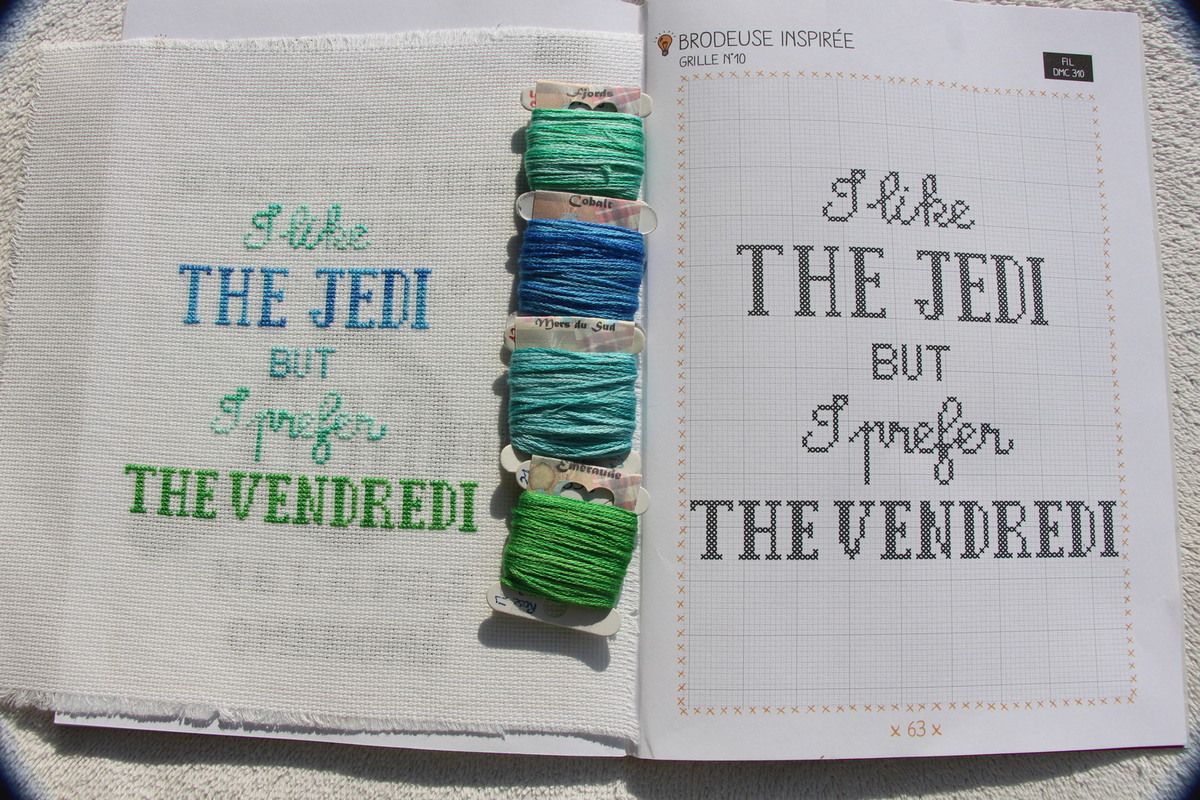 I like
THE JEDI
BUT
I prefer
THE VENDREDI
Fjords
Cobalt
Mers du Sud
Emeraude
BRODEUSE INSPIRÉE
GRILLE N°10
FIL
DMC 310
I like
THE JEDI
BUT
I prefer
THE VENDREDI
x 63 x